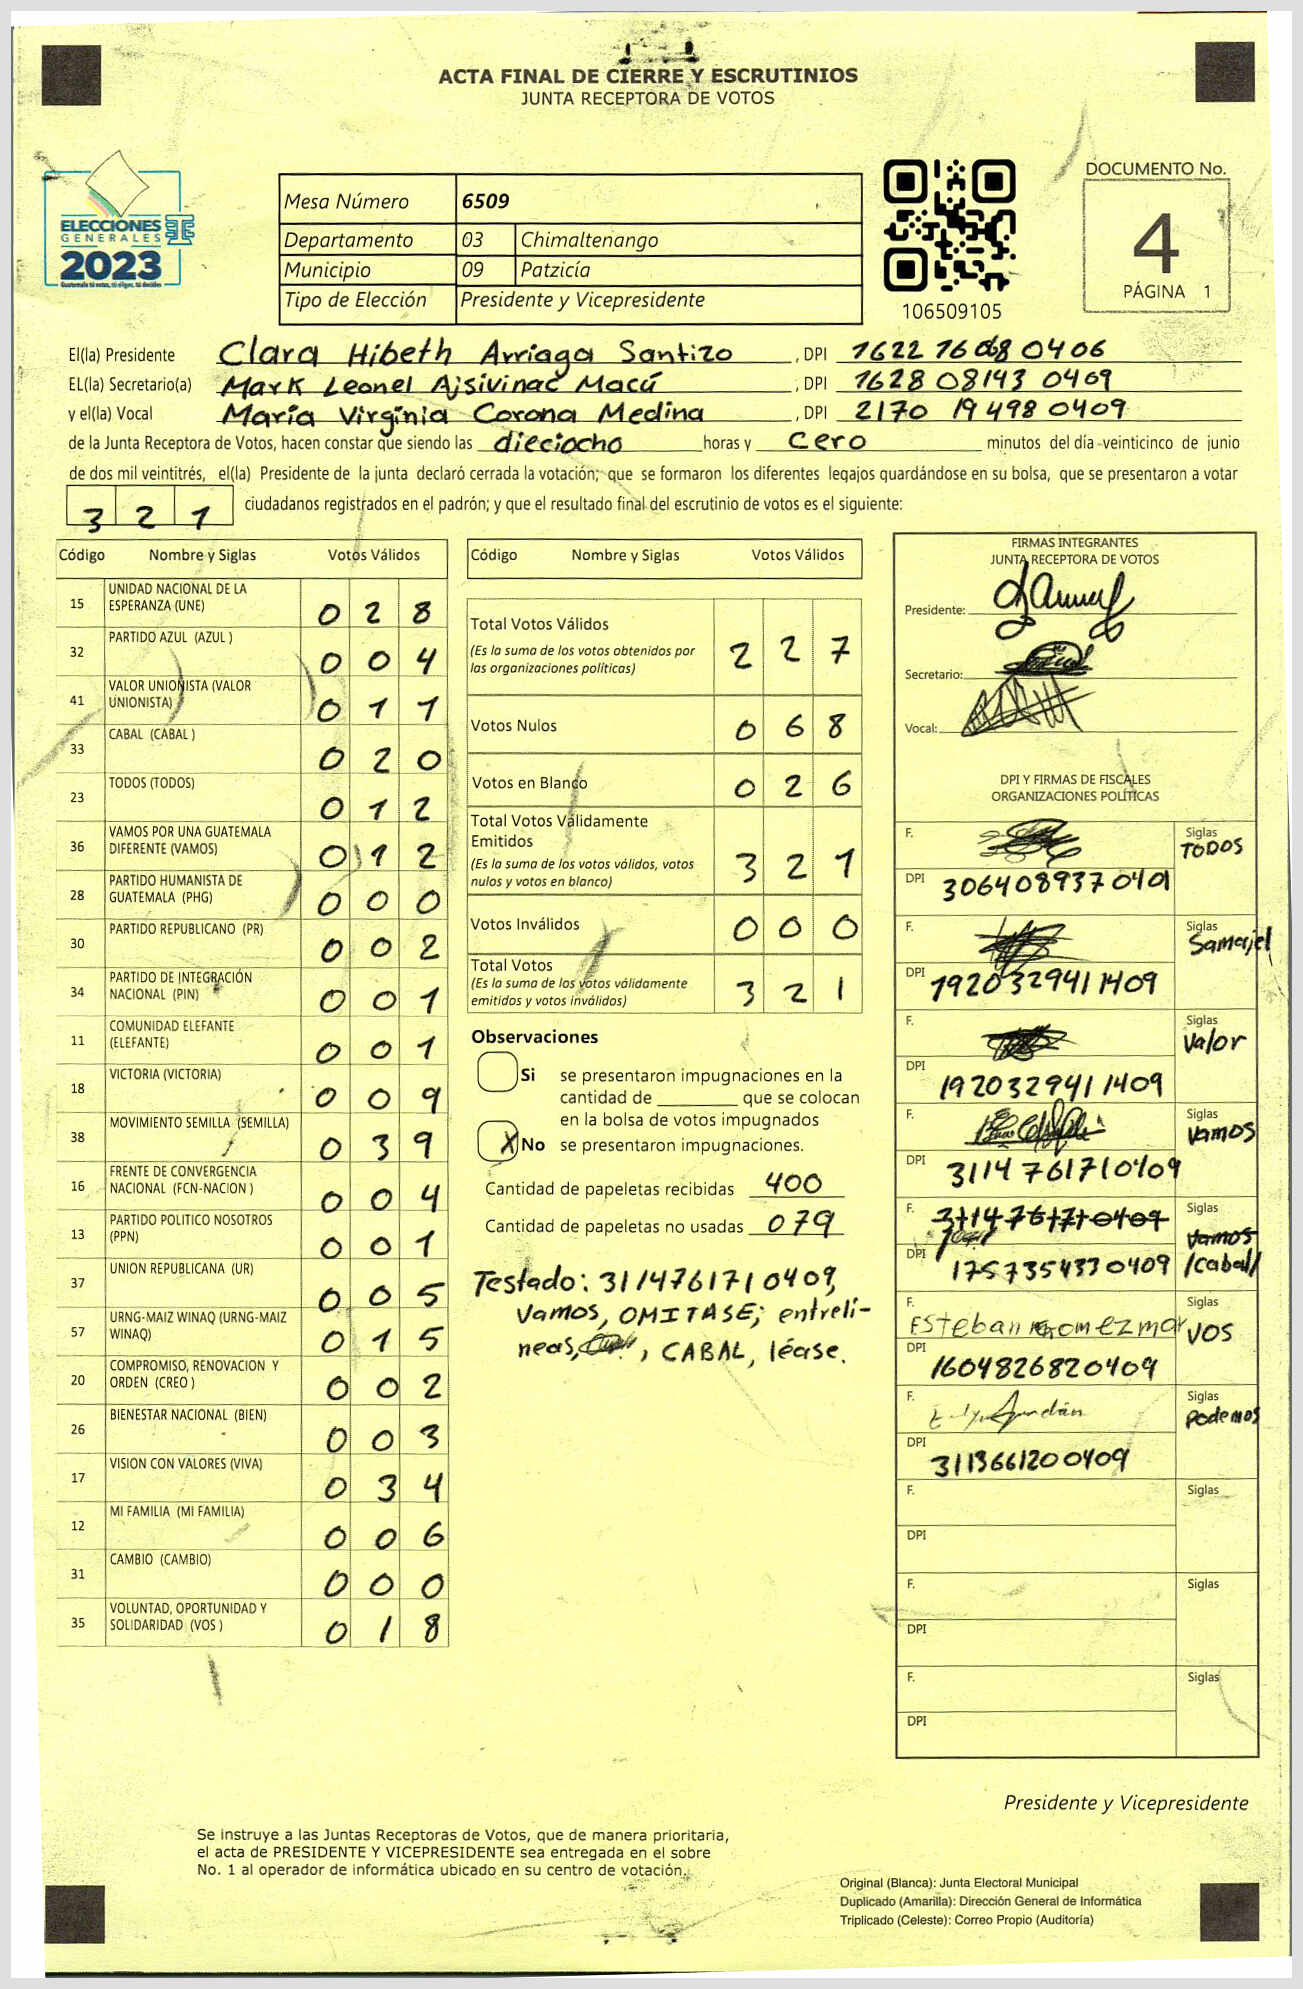 ACTA FINAL DE CIERRE Y ESCRUTINIOS
JUNTA RECEPTORA DE VOTOS
ELECCIONES
GENERALES
2023
Guatemala tú votas, tú eliges, tú decides
Mesa Número 6509
Departamento 03 Chimaltenango
Municipio 09 Patzicía
Tipo de Elección Presidente y Vicepresidente
106509105
DOCUMENTO No.
4
PÁGINA 1
El(la) Presidente Clara Hibeth Arriaga Santizo , DPI 1622 76 0406
EL(la) Secretario(a) Mark Leonel Ajsivinac Macú , DPI 1628 08143 0409
y el(la) Vocal María Virginia Corona Medina , DPI 2170 19498 0409
de la Junta Receptora de Votos, hacen constar que siendo las dieciocho horas y cero minutos del día veinticinco de junio
de dos mil veintitrés, el(la) Presidente de la junta declaró cerrada la votación; que se formaron los diferentes legajos quardándose en su bolsa, que se presentaron a votar
3 2 1 ciudadanos registrados en el padrón; y que el resultado final del escrutinio de votos es el siguiente:
Código Nombre y Siglas Votos Válidos
15 UNIDAD NACIONAL DE LA ESPERANZA (UNE) 0 2 8
32 PARTIDO AZUL (AZUL ) 0 0 4
41 VALOR UNIONISTA (VALOR UNIONISTA) 0 1 1
33 CABAL (CABAL ) 0 2 0
23 TODOS (TODOS) 0 1 2
36 VAMOS POR UNA GUATEMALA DIFERENTE (VAMOS) 0 1 2
28 PARTIDO HUMANISTA DE GUATEMALA (PHG) 0 0 0
30 PARTIDO REPUBLICANO (PR) 0 0 2
34 PARTIDO DE INTEGRACIÓN NACIONAL (PIN) 0 0 1
11 COMUNIDAD ELEFANTE (ELEFANTE) 0 0 1
18 VICTORIA (VICTORIA) 0 0 9
38 MOVIMIENTO SEMILLA (SEMILLA) 0 3 9
16 FRENTE DE CONVERGENCIA NACIONAL (FCN-NACION ) 0 0 4
13 PARTIDO POLITICO NOSOTROS (PPN) 0 0 1
37 UNION REPUBLICANA (UR) 0 0 5
57 URNG-MAIZ WINAQ (URNG-MAIZ WINAQ) 0 1 5
20 COMPROMISO, RENOVACION Y ORDEN (CREO ) 0 0 2
26 BIENESTAR NACIONAL (BIEN) 0 0 3
17 VISION CON VALORES (VIVA) 0 3 4
12 MI FAMILIA (MI FAMILIA) 0 0 6
31 CAMBIO (CAMBIO) 0 0 0
35 VOLUNTAD, OPORTUNIDAD Y SOLIDARIDAD (VOS ) 0 1 8
Código Nombre y Siglas Votos Válidos
Total Votos Válidos 2 2 7
(Es la suma de los votos obtenidos por
las organizaciones políticas)
Votos Nulos 0 6 8
Votos en Blanco 0 2 6
Total Votos Válidamente
Emitidos 3 2 1
(Es la suma de los votos válidos, votos
nulos y votos en blanco)
Votos Inválidos 0 0 0
Total Votos 3 2 1
(Es la suma de los votos válidamente
emitidos y votos inválidos)
Observaciones
Si se presentaron impugnaciones en la
cantidad de ________ que se colocan
en la bolsa de votos impugnados
X No se presentaron impugnaciones.
Cantidad de papeletas recibidas 400
Cantidad de papeletas no usadas 079
Testado: 3114761710409,
Vamos, OMITASE; entreli-
neas, , CABAL, léase.
FIRMAS INTEGRANTES
JUNTA RECEPTORA DE VOTOS
Presidente:
Secretario:
Vocal:
DPI Y FIRMAS DE FISCALES
ORGANIZACIONES POLÍTICAS
F. Siglas TODOS
DPI 3064089370401
F. Siglas Samajel
DPI 1920329411409
F. Siglas Valor
DPI 1920329411409
F. Siglas Vamos
DPI 3114761710409
F. 3114761710409 Siglas Vamos
DPI 1757354330409 /Cabal/
F. Esteban Siglas VOS
DPI 1604826820409
F. Siglas Podemos
DPI 3113661200409
F. Siglas
DPI
F. Siglas
DPI
F. Siglas
DPI
Presidente y Vicepresidente
Se instruye a las Juntas Receptoras de Votos, que de manera prioritaria,
el acta de PRESIDENTE Y VICEPRESIDENTE sea entregada en el sobre
No. 1 al operador de informática ubicado en su centro de votación.
Original (Blanca): Junta Electoral Municipal
Duplicado (Amarilla): Dirección General de Informática
Triplicado (Celeste): Correo Propio (Auditoría)